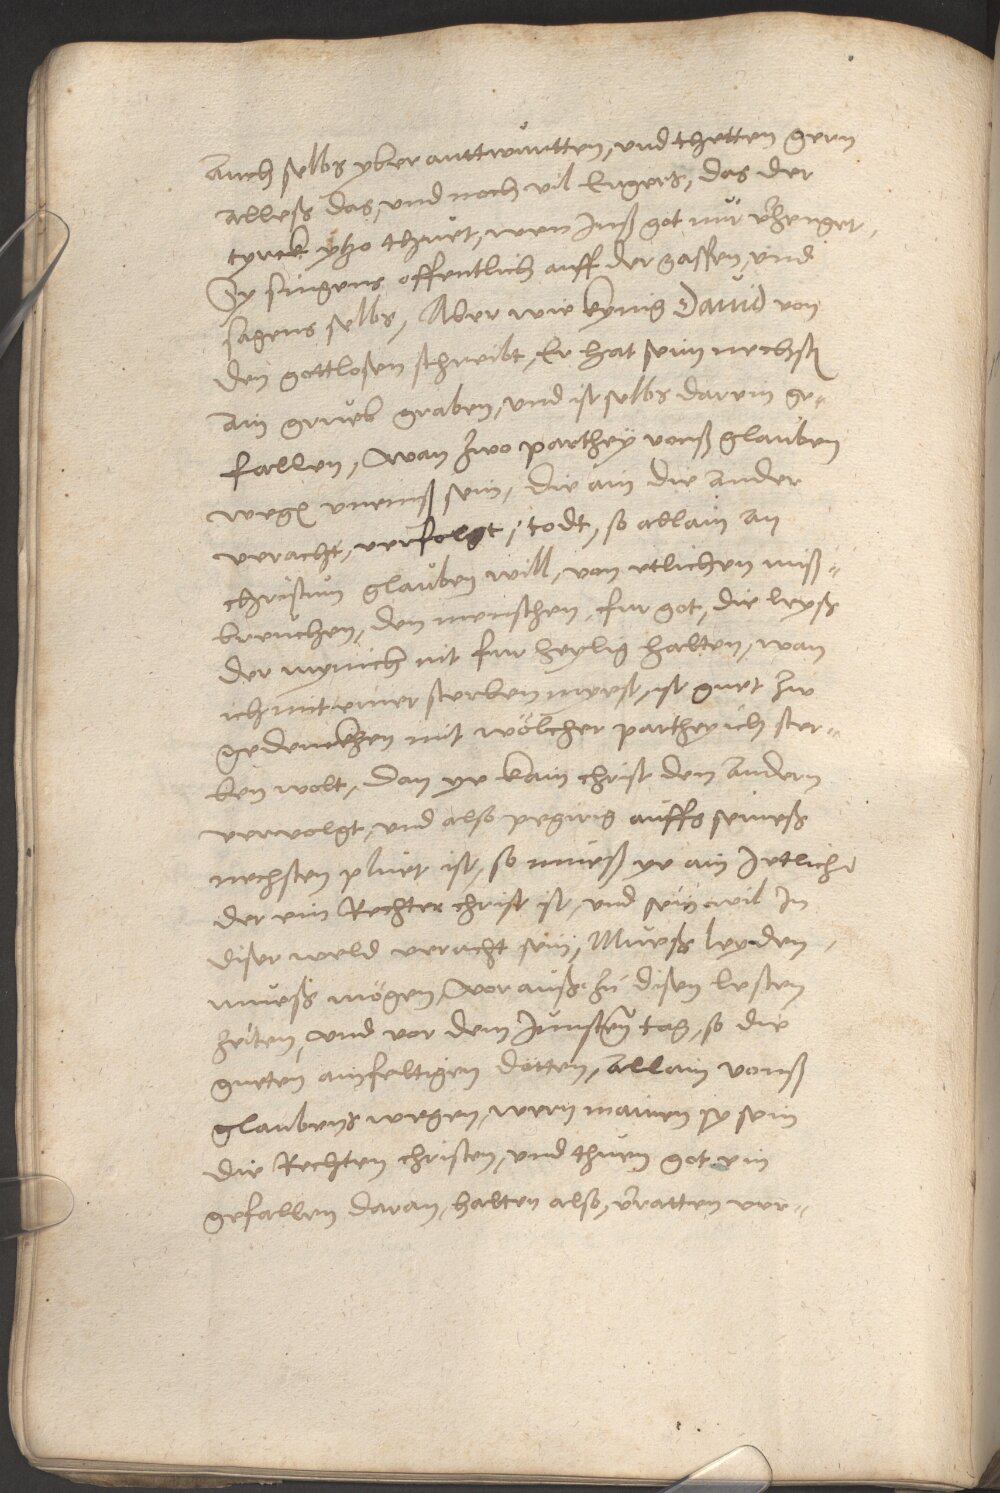 Auch selbs yber anttwurtten, und thetten gern
alless das, und noch vil Ergers, das der
tyrck yzo thuet, wen Inß got nur v̈henget,
Sy singens offentlich auff der gassen, und
sagens selbs, Aber wie kynig Dauid von
den gottlosen schreibt, Er hat seim nechstē
ain grueb graben, und ist selbs darein ge„
fallen, Wan zwo parthey vonß glauben
wegē uneinß sein, die ain die ander
veracht, verfolgt, todt, so allain an
christum glauben will, von etlichen miß„
breuchen, den menschen, fur got, die leyß
der mynich nit fur heylig halten, wan
ich mit einer sterben myest, ist guet zw
gedenckhen mit wölcher parthey ich ster„
ben wolt, Dan ye kain christ den andern
vervolgt, und also pegirig auffs seineß
nechsten pluet ist, so mueß ye ain Jetlicher
der ein Rechter christ ist, und sein wil In
diser weld veracht sein, Mueß leyden,
mueß mögen, Vorauß zu disen lesten
zeiten, und vor dem Junsten tag, so die
gueten ainfeltigen dötten, Allain vonß
glaubens wegen, wern mainen sy sein
die Rechten christen, und thuen got ein
gefallen daran, halten also, v̈ratten ver„